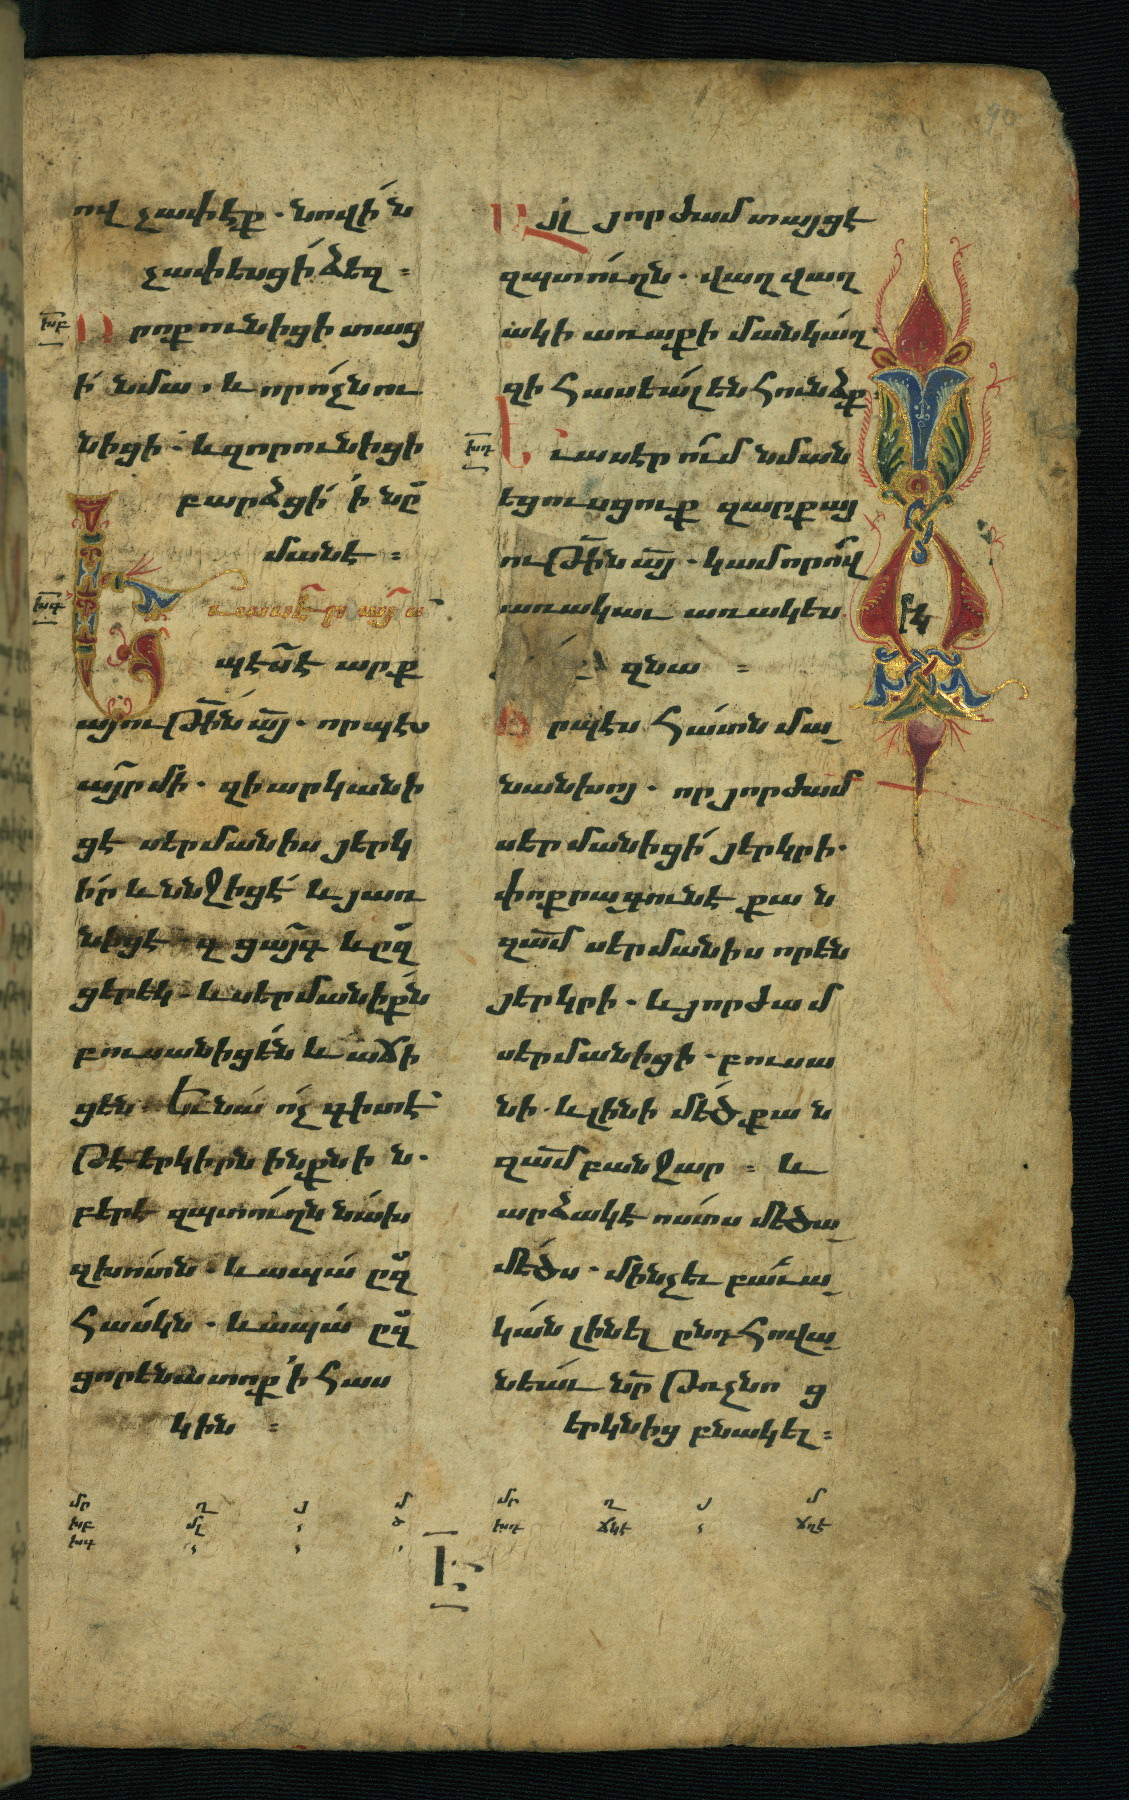 ով չափէք. նովին
չափեսցի ձեզ։
խբ
Որոք ունիցի տացց
ի նմա, և որ ոչն ու
նիցի. և զոր ունիցի
բարձցի ի նմ
մանէ։
խգ
Եւ ասէր այս
պէս է արք
այութին այ. որպէս
այր մի. զի արկանի
ցէ սերմանիս յերկ
իր և ննջիցէ և յառ
նիցէ զ ցայգ և ըզ
ցերեկ. և սերմանիքն
բուսանիցեն և աճի
ցեն. և նա ոչ գիտէ
թէ երկիրն ինքնին.
բերէ զպտուղն նախ
զխոտն. և ապա ըզ
հասկն. և ապա ըզ
ցորենատոք ի հաս
կին։
Այլ յորժամ տայցէ
զպտուղն. վաղվաղ
ակի առաքի մանկաղ.
զի հասեալ են հունձք.
խդ
Եւ ասէր ում նման
եցուսցուք զարքայ
ութին այ. կամ որով
առակաւ առակես
զնա։
Որպէս հատն մա
նանխոյ. որ յորժամ
սերմանիցի յերկրի.
փոքրագունէ քան
զամ սերմանիս որ են
յերկրի. և յորժամ
սերմանիցի. բուսա
նի. և լինի մեծ քան
զամ բանջար։ և
արձակէ ոստս մեծա
մեծս. մինչեւ բաւա
կան լինել ընդ հովա
նեաւ նր թռչնոց
երկնից բնակել։
մր ղ յ մ
խբ մլ
խգ
մր ղ յ մ
խդ ճկէ ճղէ